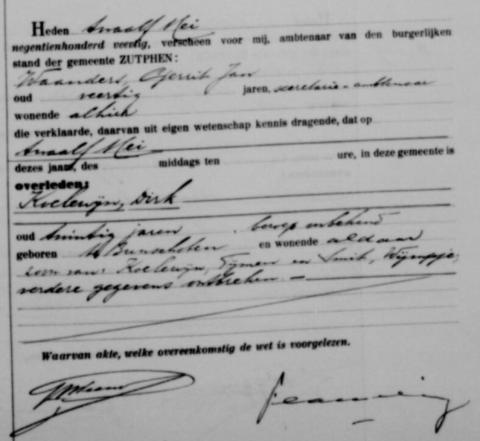 Heden twaalf Mei
negentienhonderd veertig, verscheen voor mij, ambtenaar van den burgerlijken
stand der gemeente ZUTPHEN:
Waanders, Gerrit Jan
oud veertig jaren, secretarie-ambtenaar
wonende alhier
die verklaarde, daarvan uit eigen wetenschap kennis dragende, dat op
twaalf Mei
dezes jaars, des middags ten ure, in deze gemeente is
overleden:
Koelewijn, Dirk
oud twintig jaren, beroep onbekend
geboren te Bunschoten en wonende aldaar
zoon van: Koelewijn, Tijmen en Smit, Wijmpje;
verdere gegevens ontbreken.
Waarvan akte, welke overeenkomstig de wet is voorgelezen.